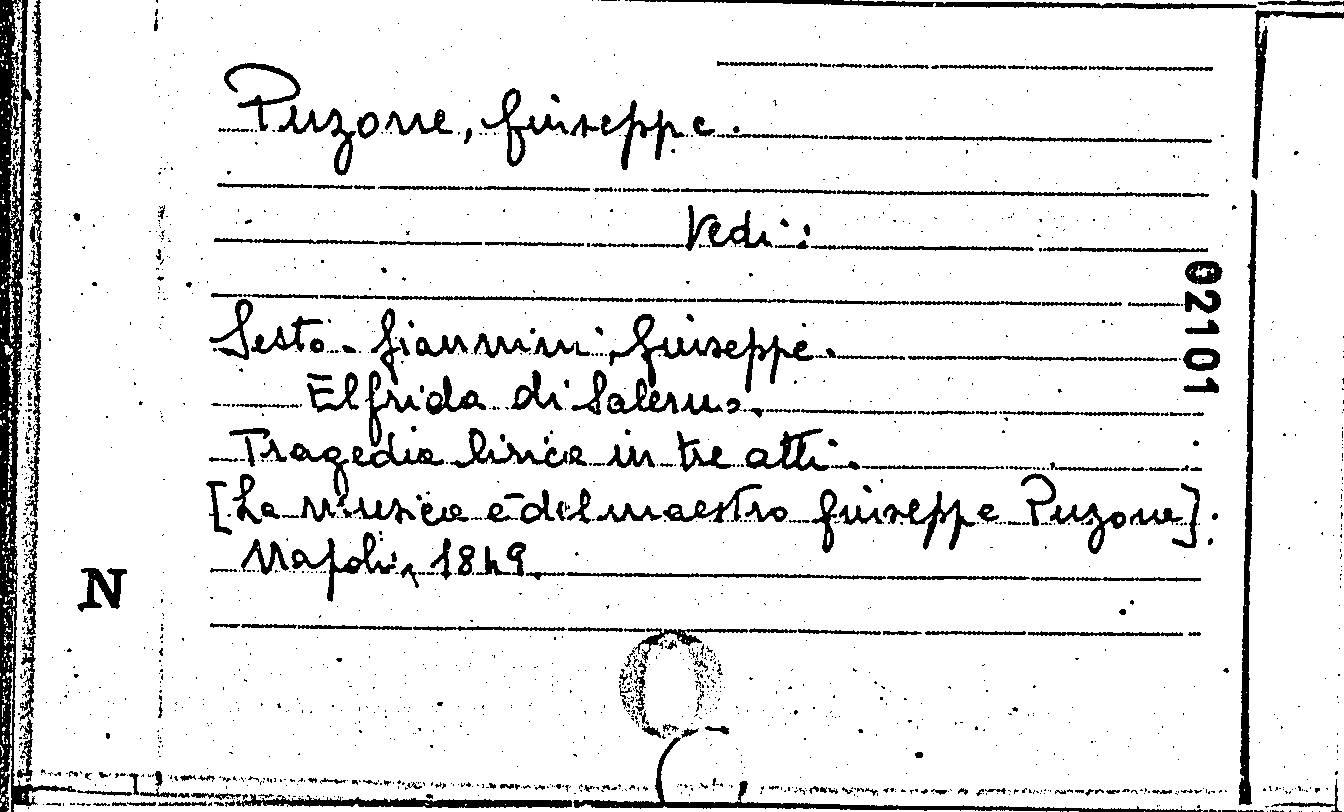 Puzone, Giuseppe.
Vedi:
02101
Sesto-Giannini, Giuseppe.
Elfrida di Salerno.
Tragedia lirica in tre atti.
[La musica è del maestro Giuseppe Puzone].
Napoli, 1849.
N